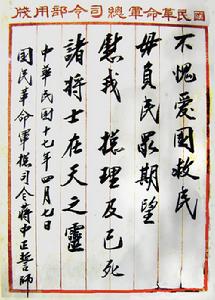 國民革命軍總司令部用牋
不愧愛國救民
毋負民眾期望
慰我 總理及已死
諸將士在天之靈
中華民國十七年四月七日
國民革命軍總司令蔣中正誓師